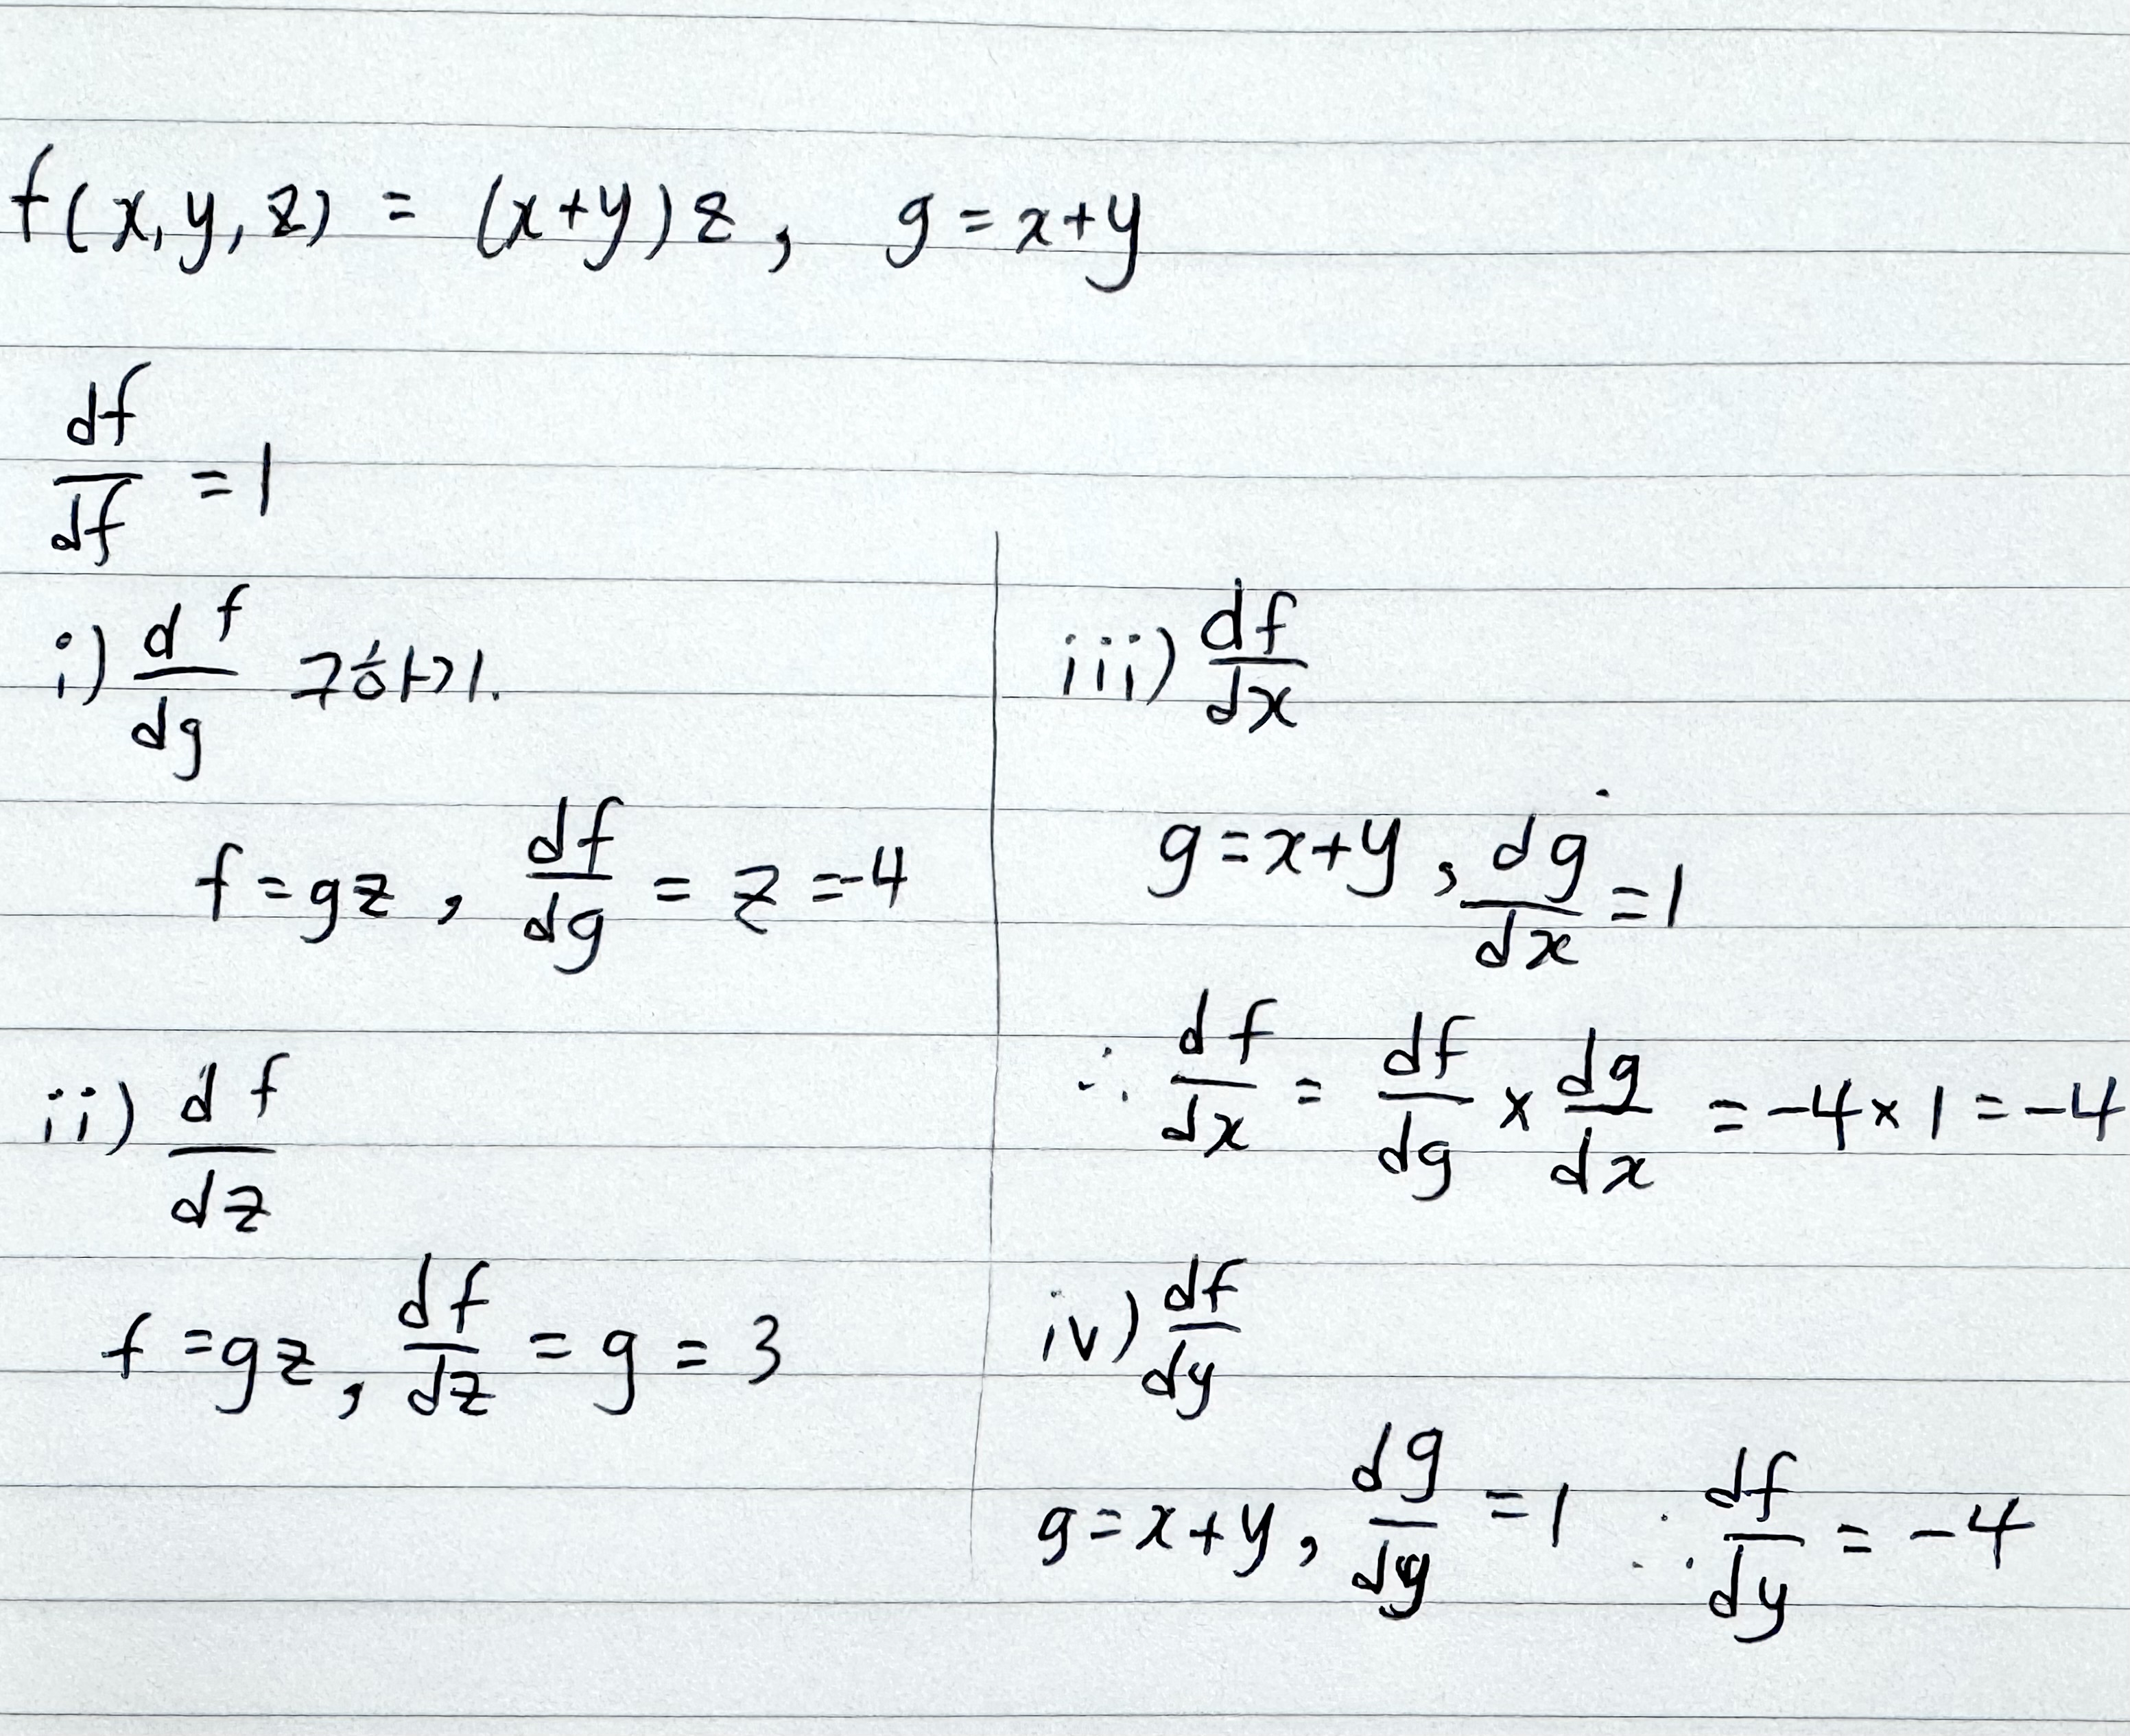 f(x,y,z) = (x+y)z, g=x+y
df/df = 1
i) df/dg 구하기.
f=gz, df/dg = z =-4
ii) df/dz
f=gz, df/dz = g = 3
iii) df/dx
g=x+y, dg/dx =1
∴ df/dx = df/dg × dg/dx = -4×1=-4
iv) df/dy
g=x+y, dg/dy =1 ∴ df/dy = -4